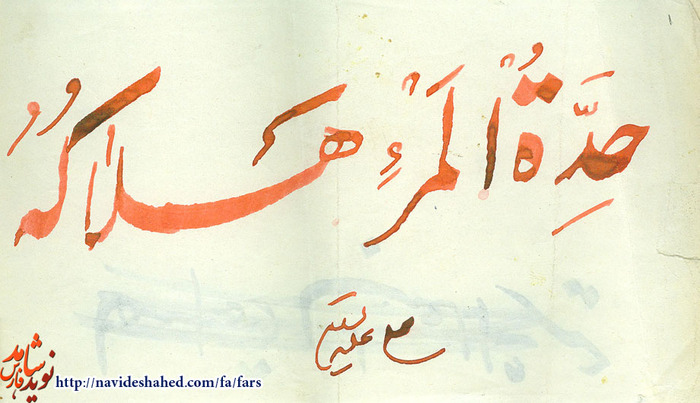 حِدَّةُ الْمَرْءِ هَلاکُهُ
علی علیه السلام
نوید شاهد فارس
http://navideshahed.com/fa/fars